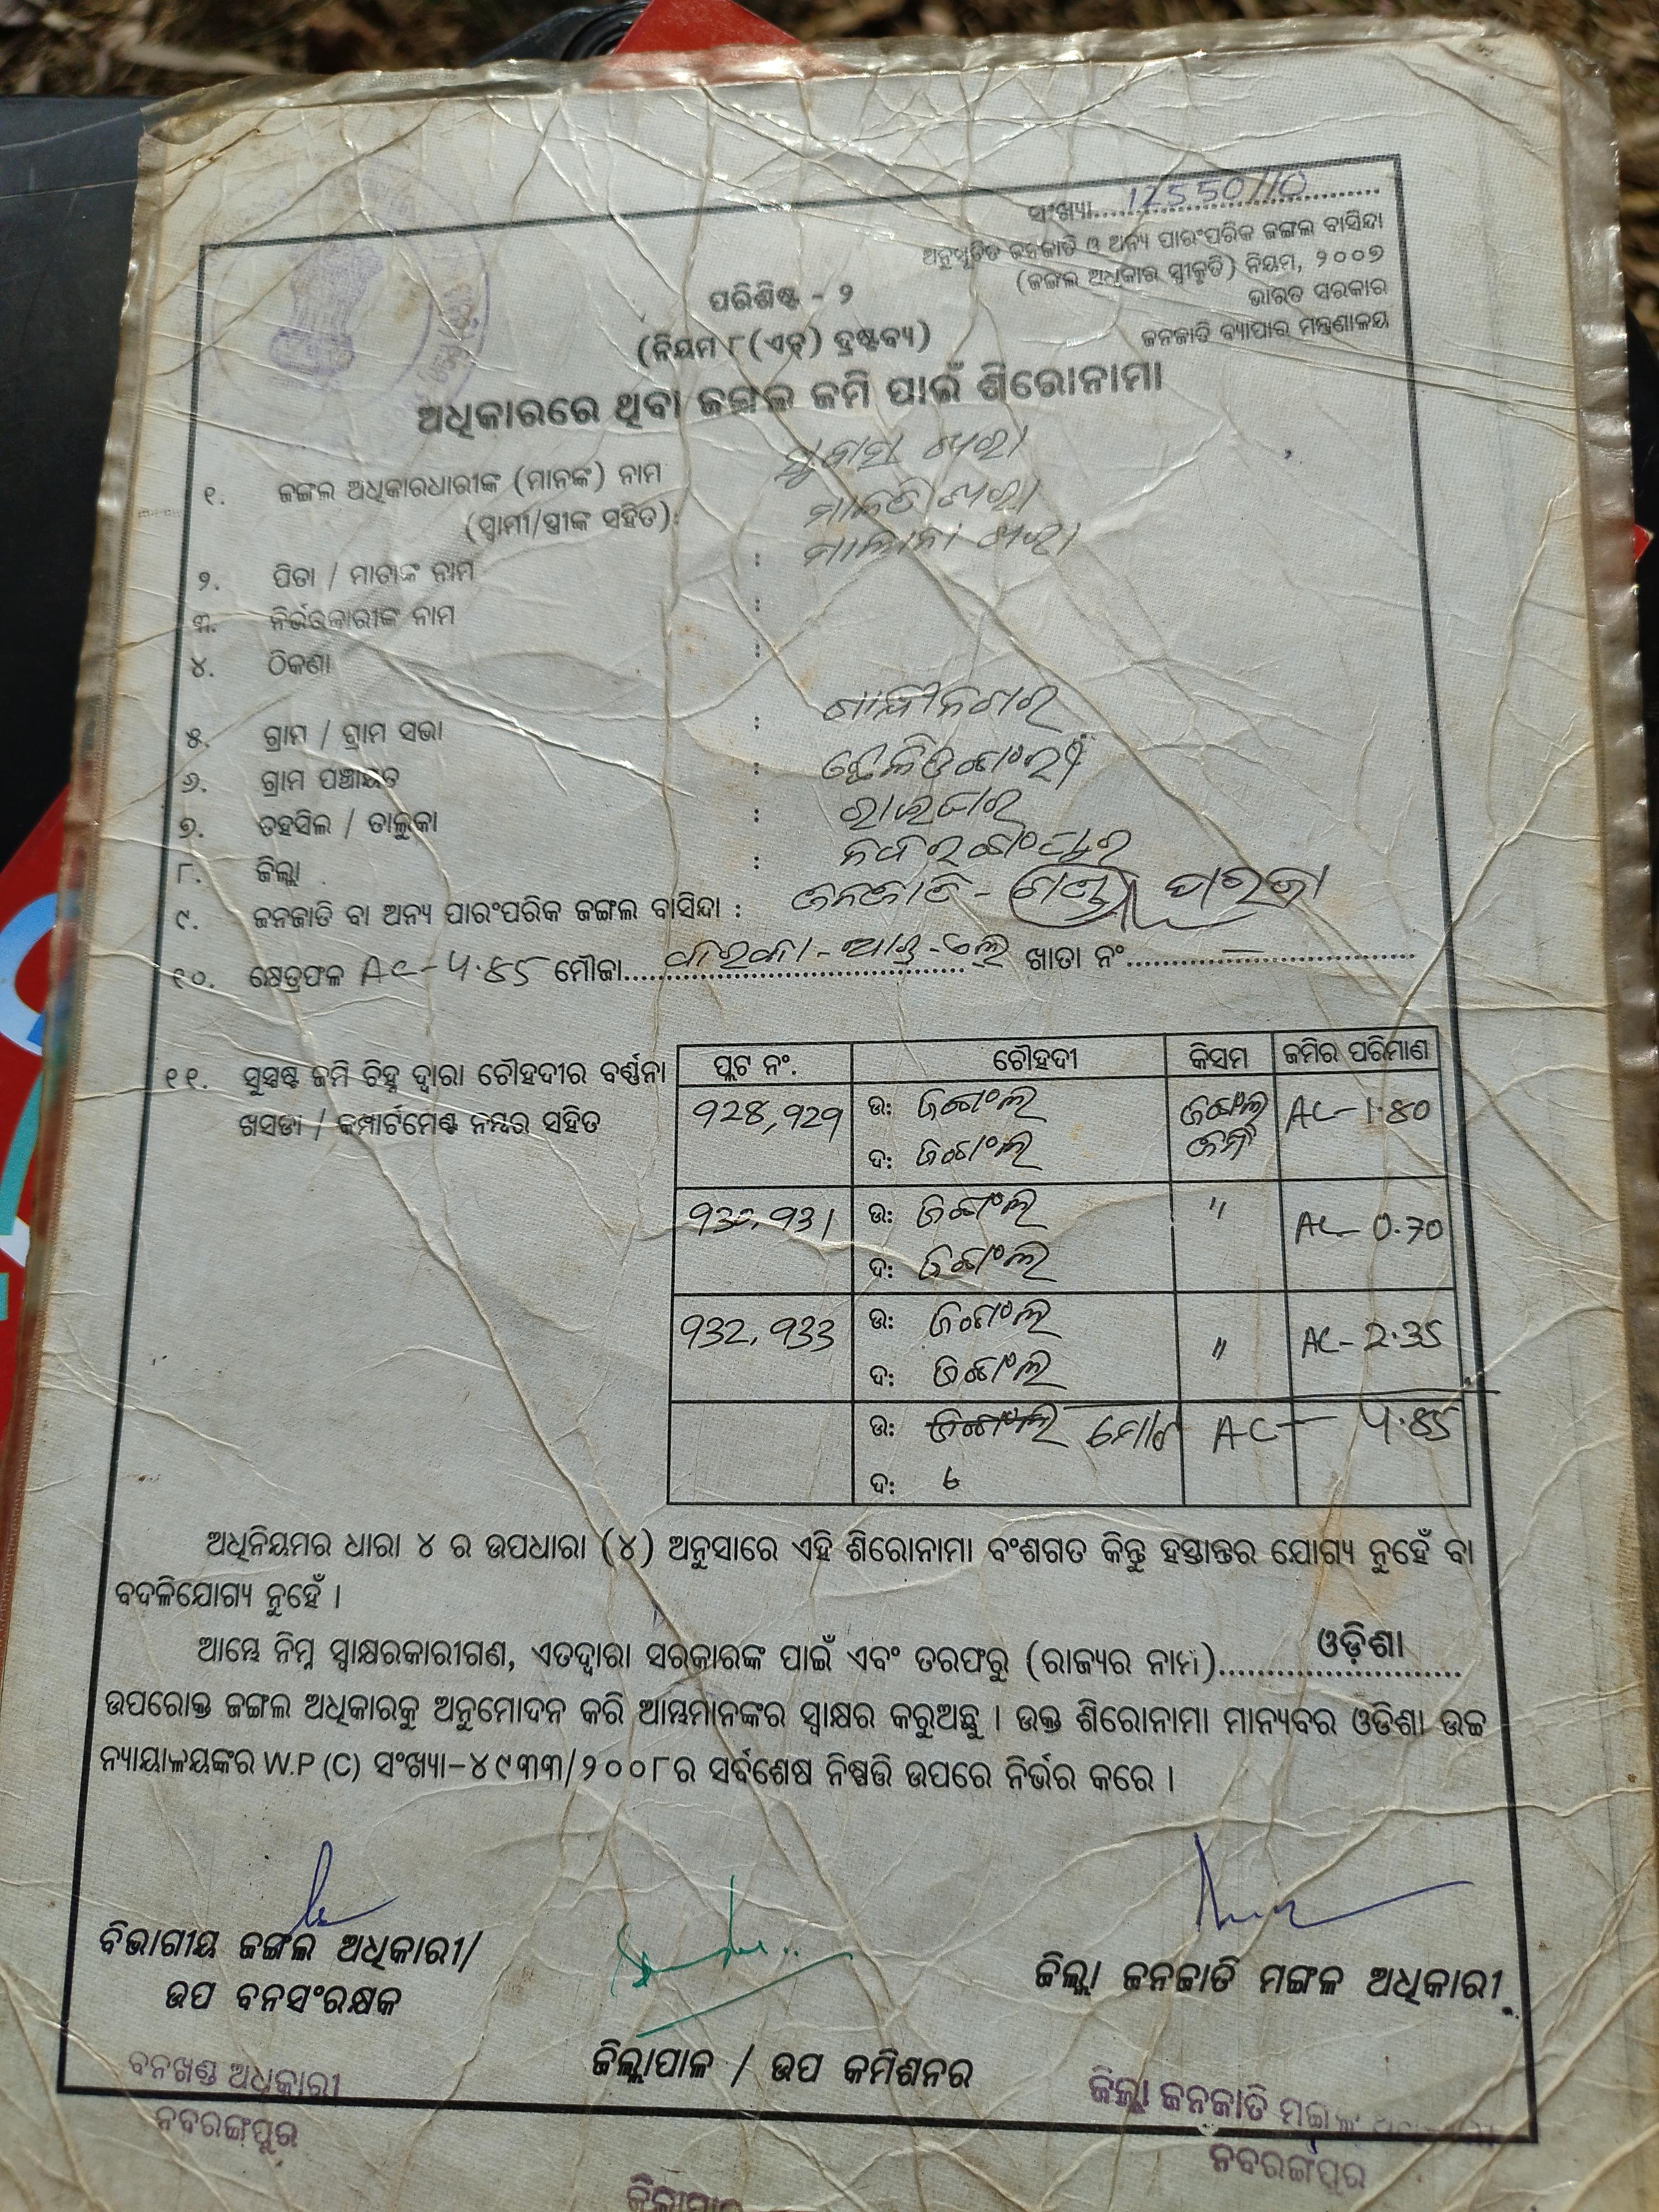 ସଂଖ୍ୟା....12550/10....
ଅନୁସୂଚିତ ଜନଜାତି ଓ ଅନ୍ୟ ପାରଂପରିକ ଜଙ୍ଗଲ ବାସିନ୍ଦା
(ଜଙ୍ଗଲ ଅଧିକାର ସ୍ୱୀକୃତି) ନିୟମ, ୨୦୦୭
ଭାରତ ସରକାର
ଜନଜାତି ବ୍ୟାପାର ମନ୍ତ୍ରଣାଳୟ
ପରିଶିଷ୍ଟ - ୨
(ନିୟମ ୮(ଏଚ୍) ଦ୍ରଷ୍ଟବ୍ୟ)
ଅଧିକାରରେ ଥିବା ଜଙ୍ଗଲ ଜମି ପାଇଁ ଶିରୋନାମା
୧. ଜଙ୍ଗଲ ଅଧିକାରଧାରୀଙ୍କ (ମାନଙ୍କ) ନାମ
(ସ୍ୱାମୀ/ସ୍ତ୍ରୀଙ୍କ ସହିତ):
୨. ପିତା / ମାତାଙ୍କ ନାମ :
୩. ନିର୍ଭରକାରୀଙ୍କ ନାମ :
୪. ଠିକଣା :
୫. ଗ୍ରାମ / ଗ୍ରାମ ସଭା : ଗାନ୍ଧୀନଗର
୬. ଗ୍ରାମ ପଞ୍ଚାୟତ :
୭. ତହସିଲ / ତାଲୁକା : ରାଇଘର
୮. ଜିଲ୍ଲା : ନବରଙ୍ଗପୁର
୯. ଜନଜାତି ବା ଅନ୍ୟ ପାରଂପରିକ ଜଙ୍ଗଲ ବାସିନ୍ଦା : ଜନଜାତି -
୧୦. କ୍ଷେତ୍ରଫଳ AC-4.85 ମୌଜା........ ଖାତା ନଂ........
୧୧. ସୁସ୍ପଷ୍ଟ ଜମି ଚିହ୍ନ ଦ୍ୱାରା ଚୌହଦୀର ବର୍ଣ୍ଣନା
ଖସଡା / କମ୍ପାର୍ଟମେଣ୍ଟ ନମ୍ବର ସହିତ
ପ୍ଲଟ ନଂ. ଚୌହଦୀ କିସମ ଜମିର ପରିମାଣ
928, 929 ଉ: ଜଙ୍ଗଲ ଜଙ୍ଗଲ ଜମି AC-1.80
ଦ: ଜଙ୍ଗଲ
930, 931 ଉ: ଜଙ୍ଗଲ " AC-0.70
ଦ: ଜଙ୍ଗଲ
932, 933 ଉ: ଜଙ୍ଗଲ " AC-2.35
ଦ: ଜଙ୍ଗଲ
ଉ: ଜଙ୍ଗଲ ମୋଟ AC- 4.85
ଦ:
ଅଧିନିୟମର ଧାରା ୪ ର ଉପଧାରା (୪) ଅନୁସାରେ ଏହି ଶିରୋନାମା ବଂଶଗତ କିନ୍ତୁ ହସ୍ତାନ୍ତର ଯୋଗ୍ୟ ନୁହେଁ ବା
ବଦଳିଯୋଗ୍ୟ ନୁହେଁ ।
ଆମ୍ଭେ ନିମ୍ନ ସ୍ୱାକ୍ଷରକାରୀଗଣ, ଏତଦ୍ୱାରା ସରକାରଙ୍କ ପାଇଁ ଏବଂ ତରଫରୁ (ରାଜ୍ୟର ନାମ)....ଓଡ଼ିଶା....
ଉପରୋକ୍ତ ଜଙ୍ଗଲ ଅଧିକାରକୁ ଅନୁମୋଦନ କରି ଆମ୍ଭମାନଙ୍କର ସ୍ୱାକ୍ଷର କରୁଅଛୁ । ଉକ୍ତ ଶିରୋନାମା ମାନ୍ୟବର ଓଡିଶା ଉଚ୍ଚ
ନ୍ୟାୟାଳୟଙ୍କର W.P (C) ସଂଖ୍ୟା-୪୯୩୩/୨୦୦୮ର ସର୍ବଶେଷ ନିଷ୍ପତ୍ତି ଉପରେ ନିର୍ଭର କରେ ।
ବିଭାଗୀୟ ଜଙ୍ଗଲ ଅଧିକାରୀ/
ଉପ ବନସଂରକ୍ଷକ
ଜିଲ୍ଲାପାଳ / ଉପ କମିଶନର
ଜିଲ୍ଲା ଜନଜାତି ମଙ୍ଗଳ ଅଧିକାରୀ
ବନଖଣ୍ଡ ଅଧିକାରୀ
ନବରଙ୍ଗପୁର
ଜିଲ୍ଲା ଜନଜାତି ମଙ୍ଗଳ
ନବରଙ୍ଗପୁର
ଜିଲ୍ଲାପାଳ